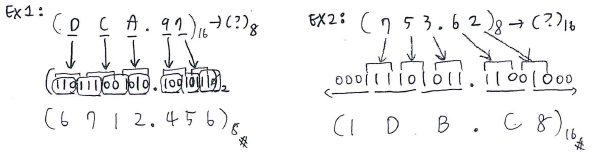 EX1: (D C A . 97)16 → (?)8
(110111001010.100101110)2
(6 7 1 2 . 4 5 6)8
EX2: (7 5 3 . 6 2)8 → (?)16
000111101011.11001000
(1 D B . C 8)16